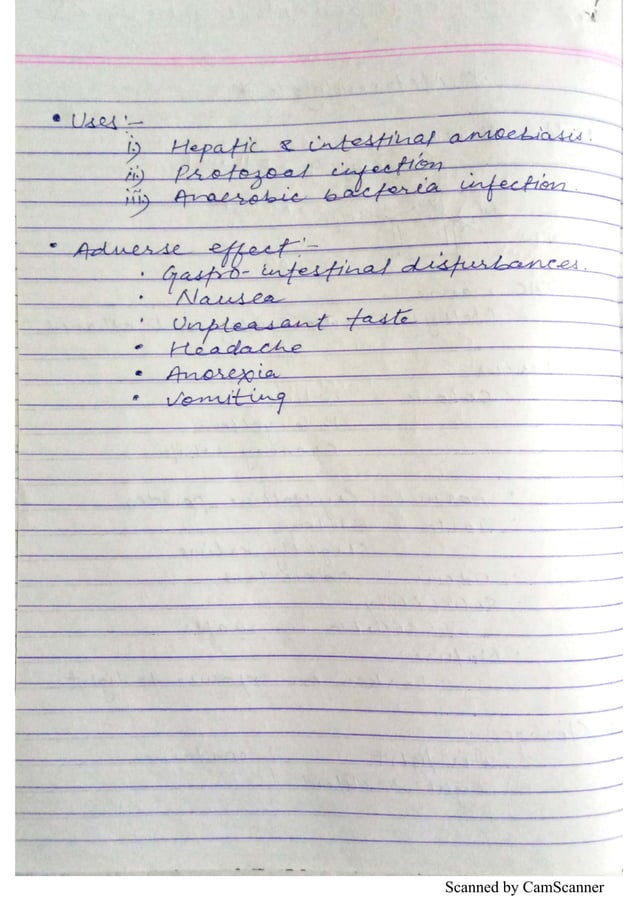 • Uses :-
i.) Hepatic & intestinal amoebiasis.
ii.) Protozoal injection
iii.) Anaerobic bacteria infection.
• Adverse effect :-
• Gastro-intestinal disturbances.
• Nausea
• Unpleasant taste
• Headache
• Anorexia
• Vomiting
Scanned by CamScanner